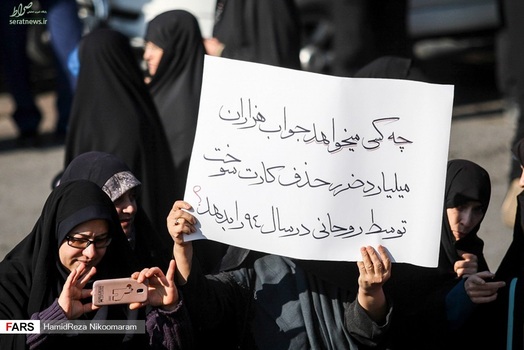 صراط
seratnews.ir
چه کسی میخواهد جواب هزاران
میلیارد ضرر حذف کارت سوخت
توسط روحانی در سال ۹۴ را بدهد؟
FARS HamidReza Nikoomaram